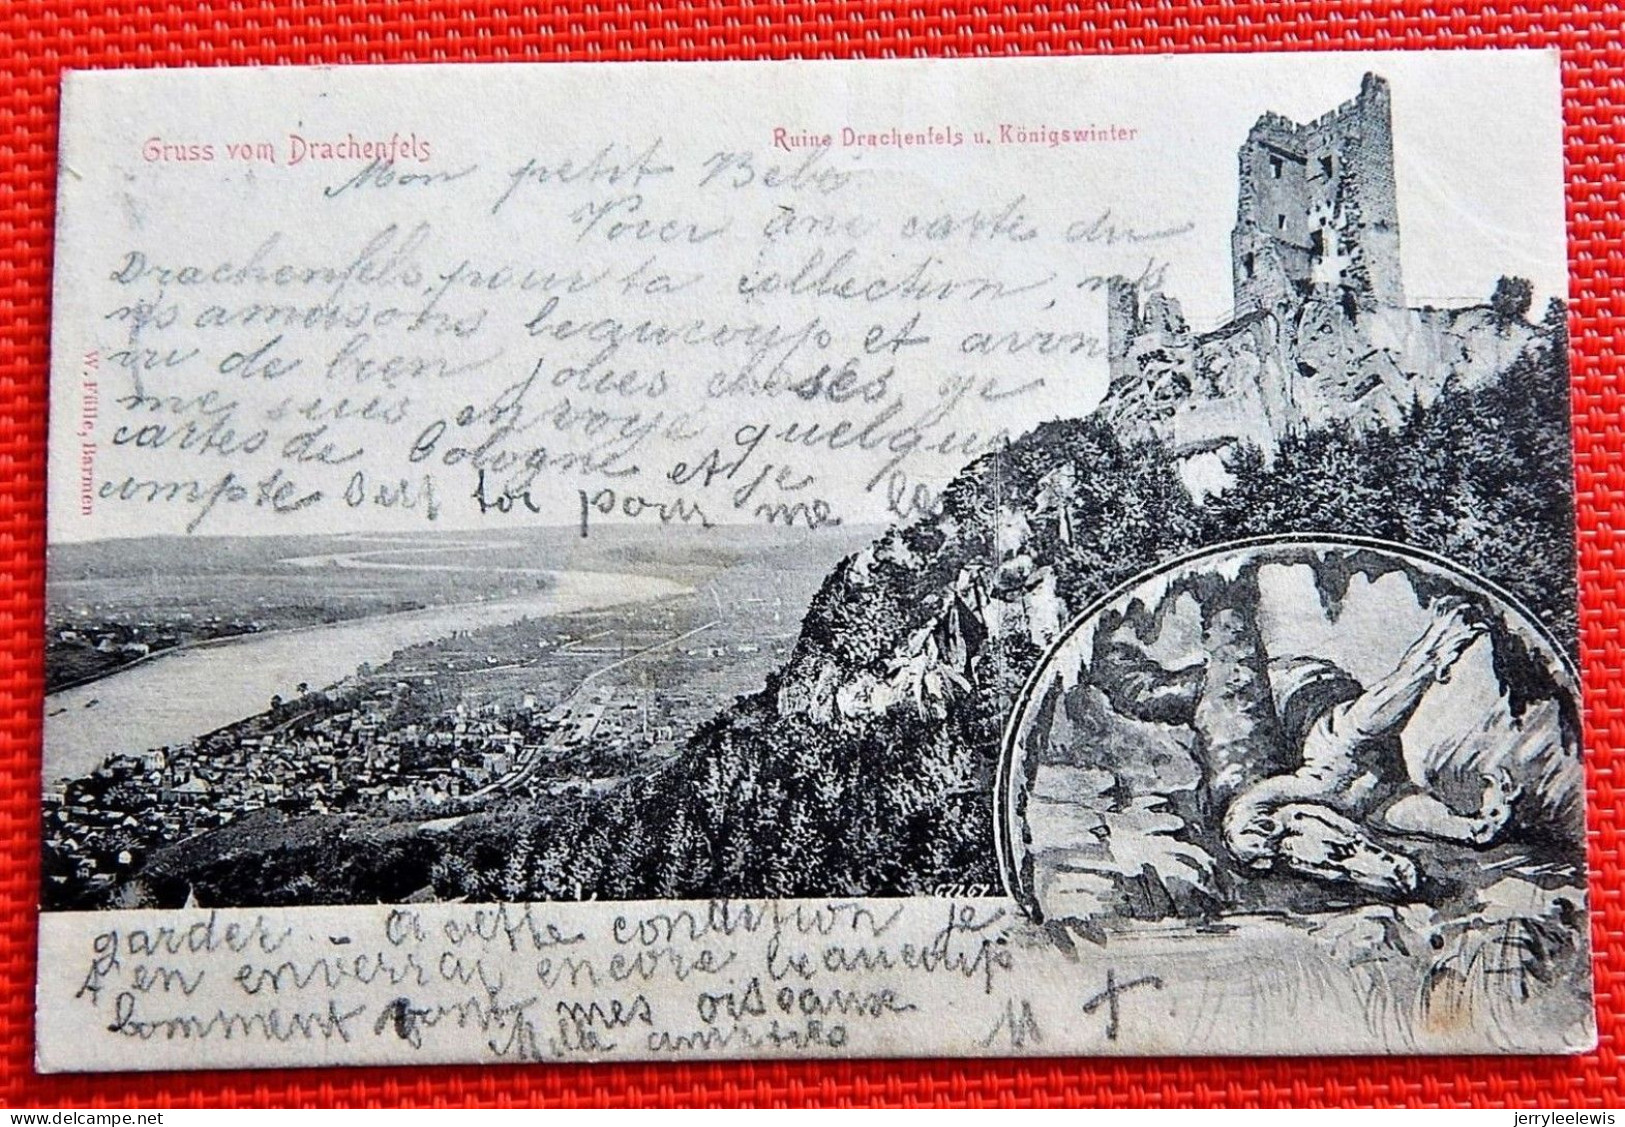 Gruss vom Drachenfels
Ruine Drachenfels u. Königswinter
Mon petit Bebé
Voici une carte du
Drachenfels, pour ta collection, ns
ns amusons beaucoup et avons
vu de bien jolies choses, je
me suis envoyé quelques
cartes de Cologne et je
compte sur toi pour me les
garder. - A cette condition je
t'en enverrai encore beaucoup
Comment vont mes oiseaux
Mille amitiés M
W. Fülle, Barmen
jerryleelewis